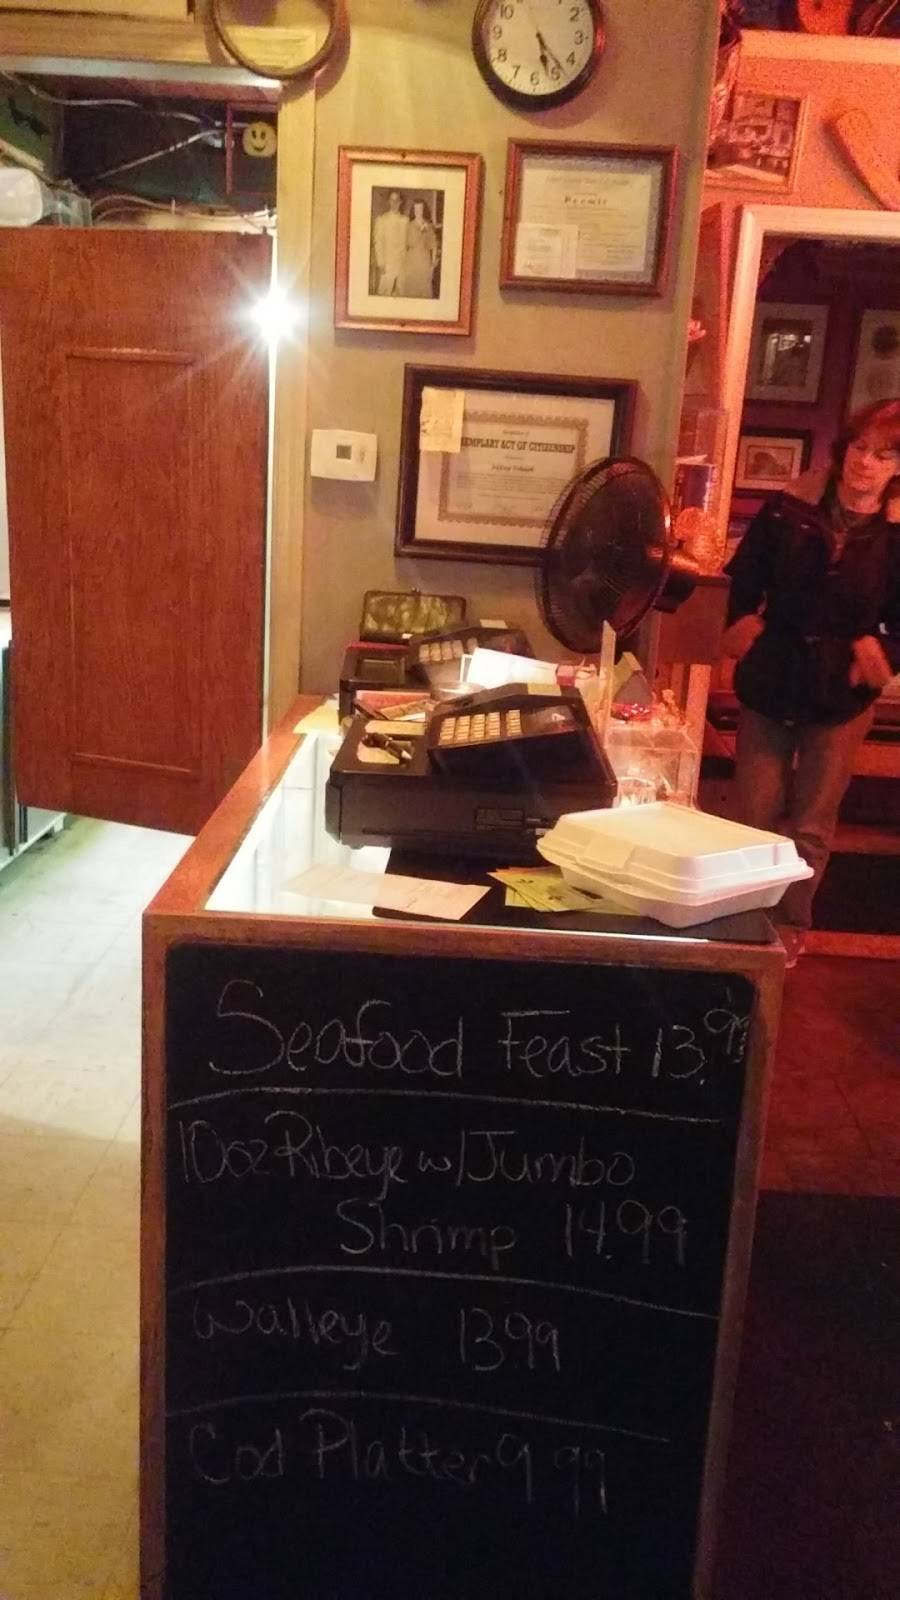 10
2
3
4
5
6
7
8
9
Permit
EMPLARY ACT OF CITIZENSHIP
Seafood Feast 13.99
10oz Ribeye w/Jumbo
Shrimp 14.99
Walleye 13.99
Cod Platter 9.99